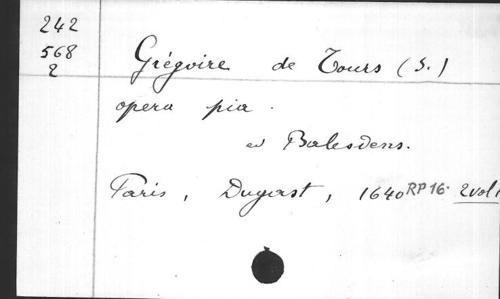 242
568
2
Grégoire de Tours (S.)
opera pia.
ed Balesdens.
Paris, Dugast, 1640 RP16. 2 vol